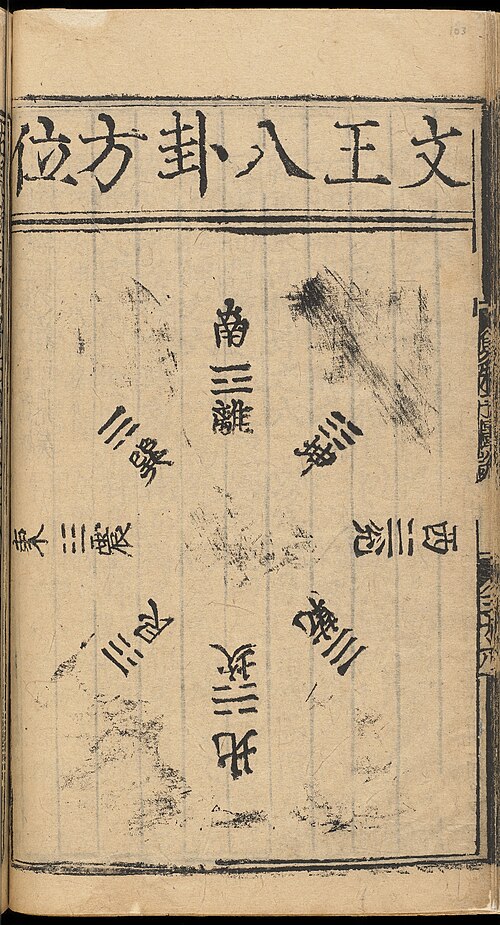 163
文王八卦方位
南
離
巽
東
震
艮
北
坎
乾
西
兌